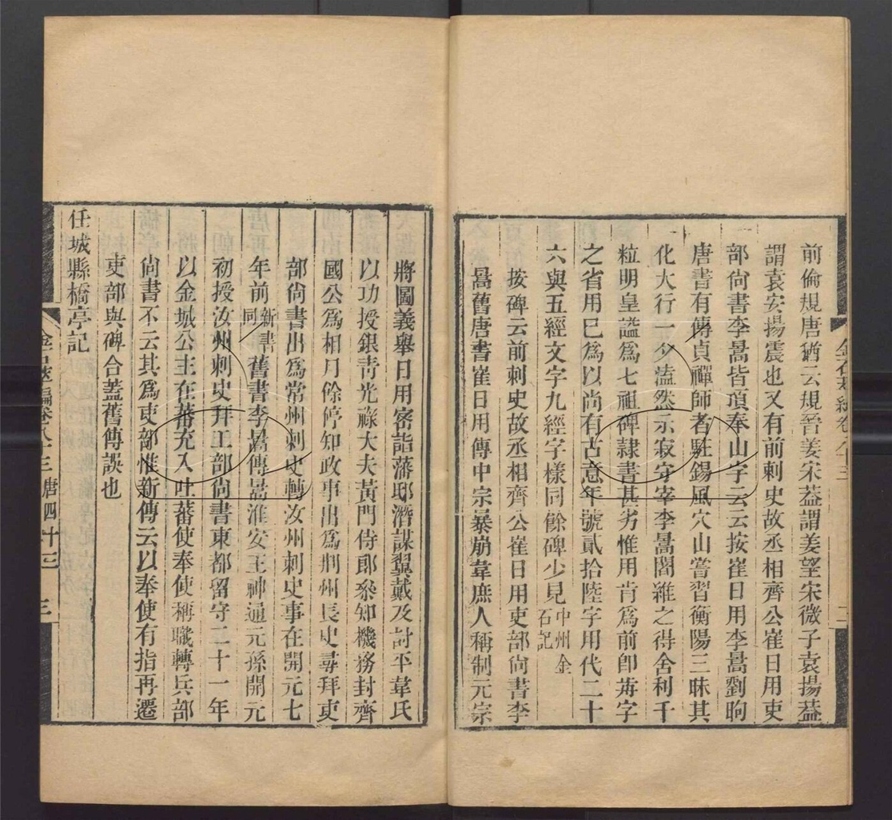 金石萃編卷八十三
二
前倫規唐猶云規晉姜宋益謂姜望宋微子袁揚益
謂袁安揚震也又有前刺史故丞相齊公崔日用吏
部尚書李暠皆頂奉山字云云按崔日用李暠劉昫
唐書有傳貞禪師者駐錫風穴山嘗習衡陽三昧其
化大行一夕溘然示寂守宰李暠閻維之得舍利千
粒明皇謚為七祖碑隷書甚劣惟用肯為前卽
字
之省用巳為以尚有古意年號貳拾陸字用代二十
六與五經文字九經字樣同餘碑少見中州金
石記
按碑云前刺史故丞相齊公崔日用吏部尚書李
暠舊唐書崔日用傳中宗暴崩韋庶人稱制元宗
將圖義舉日用密詣藩邸潛謀翼戴及討平韋氏
以功授銀青光祿大夫黃門侍郎叅知機務封齊
國公為相月餘停知政事出為荆州長史尋拜吏
部尚書出為常州刺史轉汝州刺史事在開元七
年前新書
同舊書李暠傳暠淮安王神通元孫開元
初授汝州刺史拜工部尚書東都留守二十一年
以金城公主在蕃充入吐蕃使奉使稱職轉兵部
尚書不云其為吏部惟新傳云以奉使有指再遷
吏部與碑合蓋舊傳誤也
任城縣橋亭記
金石萃編卷八十三 唐四十三
三